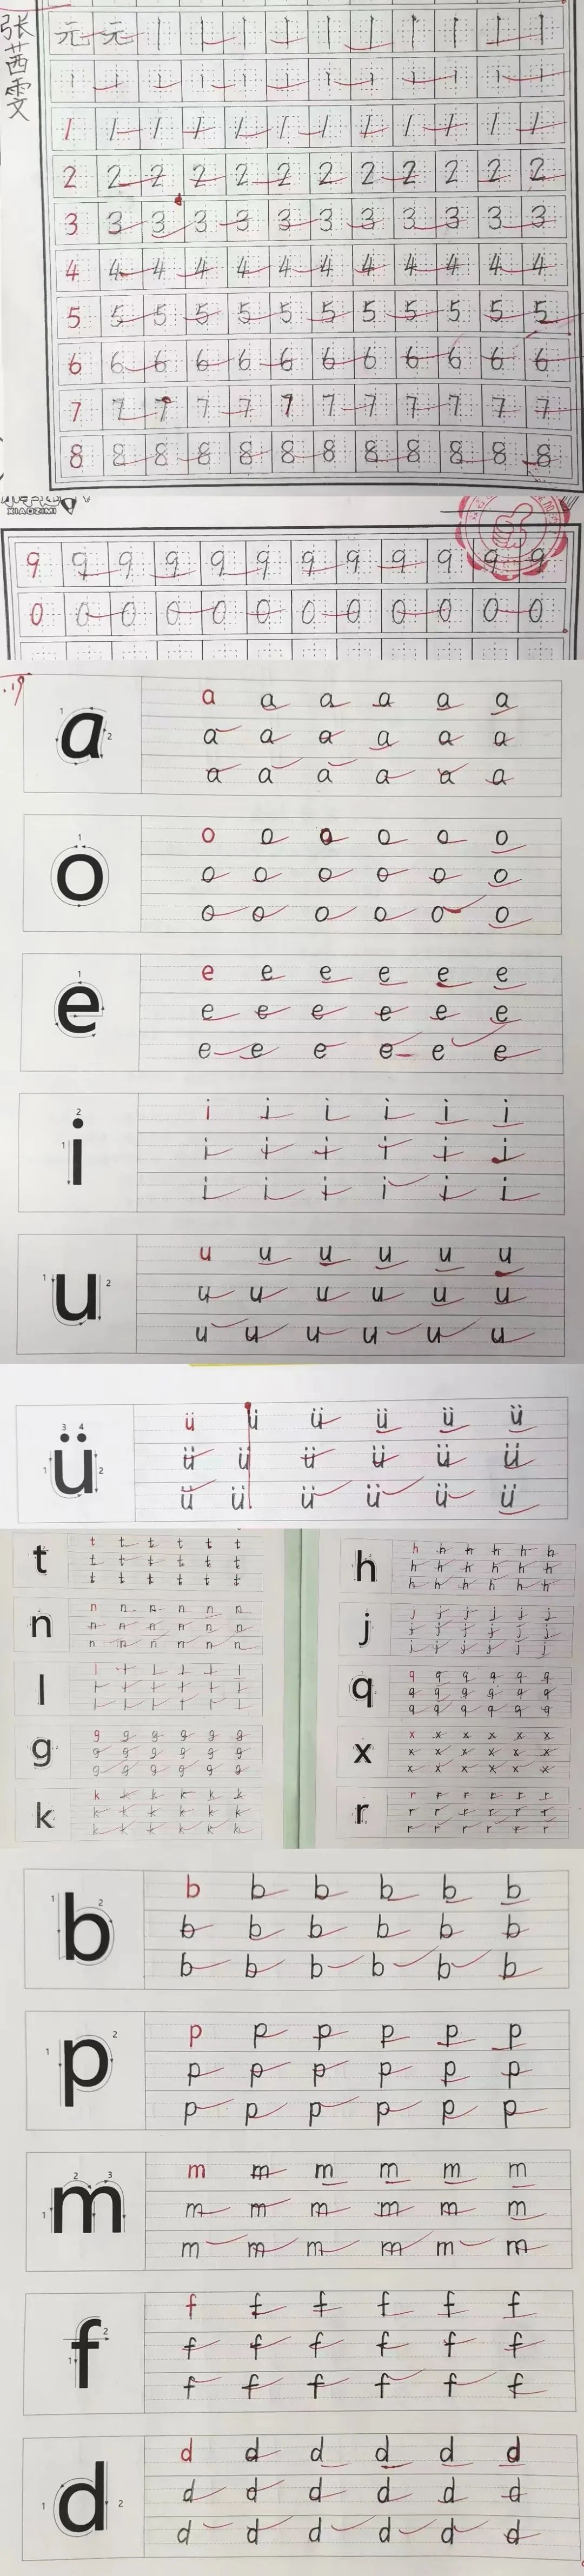 张茜雯
元 元 丨 丨 丨 丨 丨 丨 丨 丨 丨 丨
1 1 1 1 1 1 1 1 1 1 1 1
1 1 1 1 1 1 1 1 1 1 1 1
2 2 2 2 2 2 2 2 2 2 2 2
3 3 3 3 3 3 3 3 3 3 3 3
4 4 4 4 4 4 4 4 4 4 4 4
5 5 5 5 5 5 5 5 5 5 5 5
6 6 6 6 6 6 6 6 6 6 6 6
7 7 7 7 7 7 7 7 7 7 7 7
8 8 8 8 8 8 8 8 8 8 8 8
XIAOZIMI
9 9 9 9 9 9 9 9 9 9 9 9
0 0 0 0 0 0 0 0 0 0 0 0
.19
a
a a a a a a
a a a a a a
a a a a a a
o
o o o o o o
o o o o o o
o o o o o o
e
e e e e e e
e e e e e e
e e e e e e
i
i i i i i i
i i i i i i
i i i i i i
u
u u u u u u
u u u u u u
u u u u u u
ü
ü ü ü ü ü ü
ü ü ü ü ü ü
ü ü ü ü ü ü
t
t t t t t t
t t t t t t
t t t t t t
n
n n n n n n
n n n n n n
n n n n n n
l
l l l l l l
l l l l l l
l l l l l l
g
g g g g g g
g g g g g g
g g g g g g
k
k k k k k k
k k k k k k
k k k k k k
h
h h h h h h
h h h h h h
h h h h h h
j
j j j j j j
j j j j j j
j j j j j j
q
q q q q q q
q q q q q q
q q q q q q
x
x x x x x x
x x x x x x
x x x x x x
r
r r r r r r
r r r r r r
r r r r r r
b
b b b b b b
b b b b b b
b b b b b b
p
p p p p p p
p p p p p p
p p p p p p
m
m m m m m m
m m m m m m
m m m m m m
f
f f f f f f
f f f f f f
f f f f f f
d
d d d d d d
d d d d d d
d d d d d d